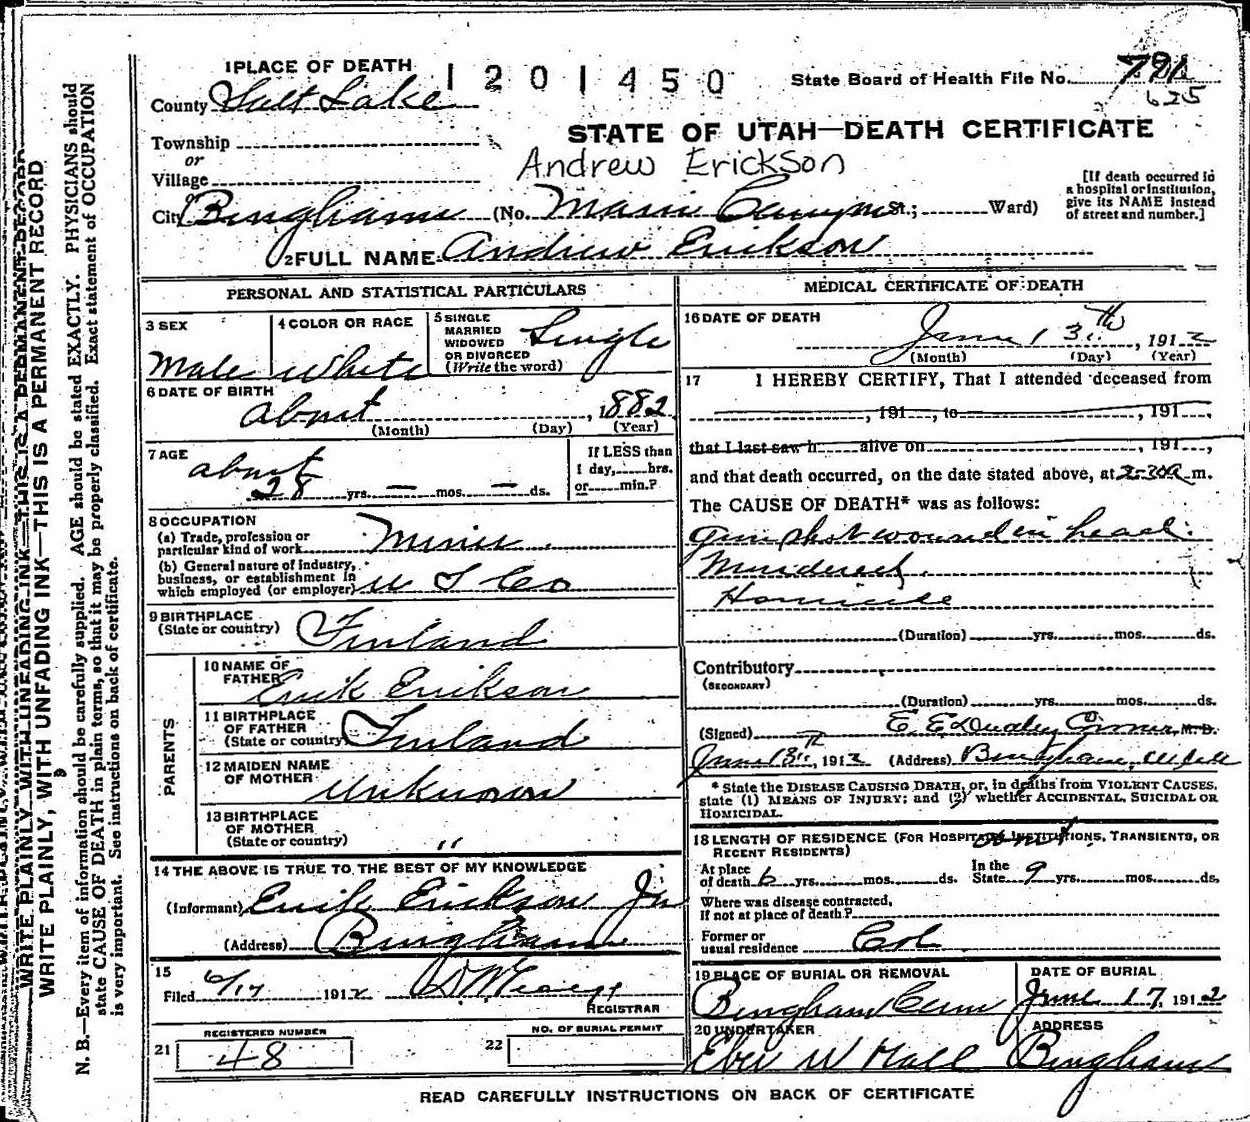 1 PLACE OF DEATH
1201450
State Board of Health File No. 781
625
County Salt Lake
STATE OF UTAH—DEATH CERTIFICATE
Township
or
Andrew Erickson
Village
[If death occurred in a hospital or institution, give its NAME instead of street and number.]
City Bingham (No. St.; Ward)
2 FULL NAME Andrew Erikson
PERSONAL AND STATISTICAL PARTICULARS
3 SEX
Male
4 COLOR OR RACE
White
5 SINGLE
MARRIED
WIDOWED
OR DIVORCED
(Write the word)
Single
6 DATE OF BIRTH
about , 1882
(Month) (Day) (Year)
7 AGE
about
28 yrs. — mos. — ds.
If LESS than
1 day, hrs.
or min.?
8 OCCUPATION
(a) Trade, profession or
particular kind of work Miner
(b) General nature of industry,
business, or establishment in
which employed (or employer) U S Co
9 BIRTHPLACE
(State or country) Finland
PARENTS
10 NAME OF
FATHER Erik Erikson
11 BIRTHPLACE
OF FATHER
(State or country) Finland
12 MAIDEN NAME
OF MOTHER Unknown
13 BIRTHPLACE
OF MOTHER
(State or country) "
14 THE ABOVE IS TRUE TO THE BEST OF MY KNOWLEDGE
(Informant) Erik Erickson Jr
(Address) Bingham
15
Filed 6/17 1912
REGISTRAR
REGISTERED NUMBER
21 48
NO. OF BURIAL PERMIT
22
MEDICAL CERTIFICATE OF DEATH
16 DATE OF DEATH
June 13th, 1912
(Month) (Day) (Year)
17 I HEREBY CERTIFY, That I attended deceased from
, 191 , to , 191 ,
that I last saw h alive on , 191 ,
and that death occurred, on the date stated above, at 2-30a m.
The CAUSE OF DEATH* was as follows:
Gun shot wound in head.
Murdered.
Homicide
(Duration) yrs. mos. ds.
Contributory
(SECONDARY)
(Duration) yrs. mos. ds.
(Signed) E. E. Dudley Coroner M. D.
June 13th, 1912 (Address) Bingham, Utah
* State the DISEASE CAUSING DEATH, or, in deaths from VIOLENT CAUSES,
state (1) MEANS OF INJURY; and (2) whether ACCIDENTAL, SUICIDAL OR
HOMICIDAL.
18 LENGTH OF RESIDENCE (FOR HOSPITALS, INSTITUTIONS, TRANSIENTS, OR
RECENT RESIDENTS)
about
At place
of death 6 yrs. mos. ds.
In the
State 9 yrs. mos. ds.
Where was disease contracted,
if not at place of death?
Former or
usual residence Col
19 PLACE OF BURIAL OR REMOVAL
Bingham Cem
DATE OF BURIAL
June 17, 1912
20 UNDERTAKER
Eber W Hall
ADDRESS
Bingham
READ CAREFULLY INSTRUCTIONS ON BACK OF CERTIFICATE
WRITE PLAINLY, WITH UNFADING INK—THIS IS A PERMANENT RECORD
N. B.—Every item of information should be carefully supplied. AGE should be stated EXACTLY. PHYSICIANS should
state CAUSE OF DEATH in plain terms, so that it may be properly classified. Exact statement of OCCUPATION
is very important. See instructions on back of certificate.